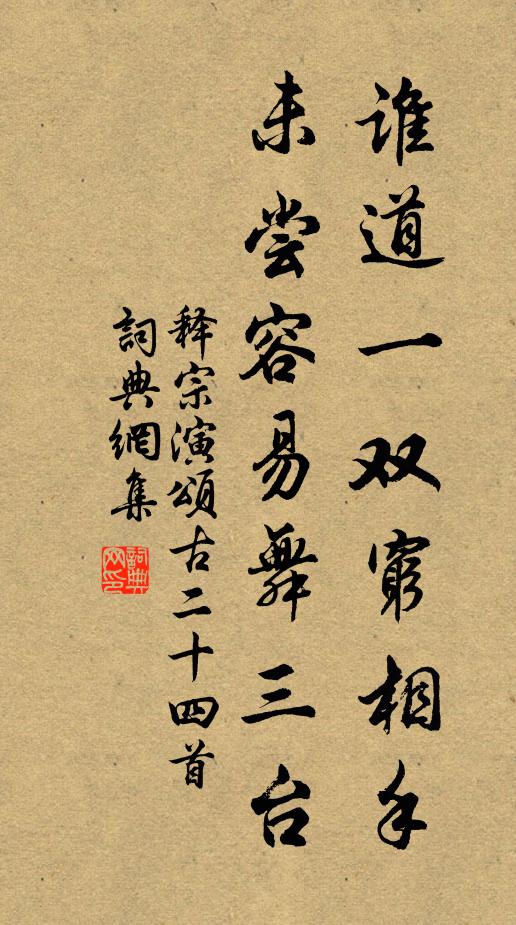 谁道一双窮相手
未尝容易舞三台
释宗演頌古二十四首
詞典網集
詞典网印